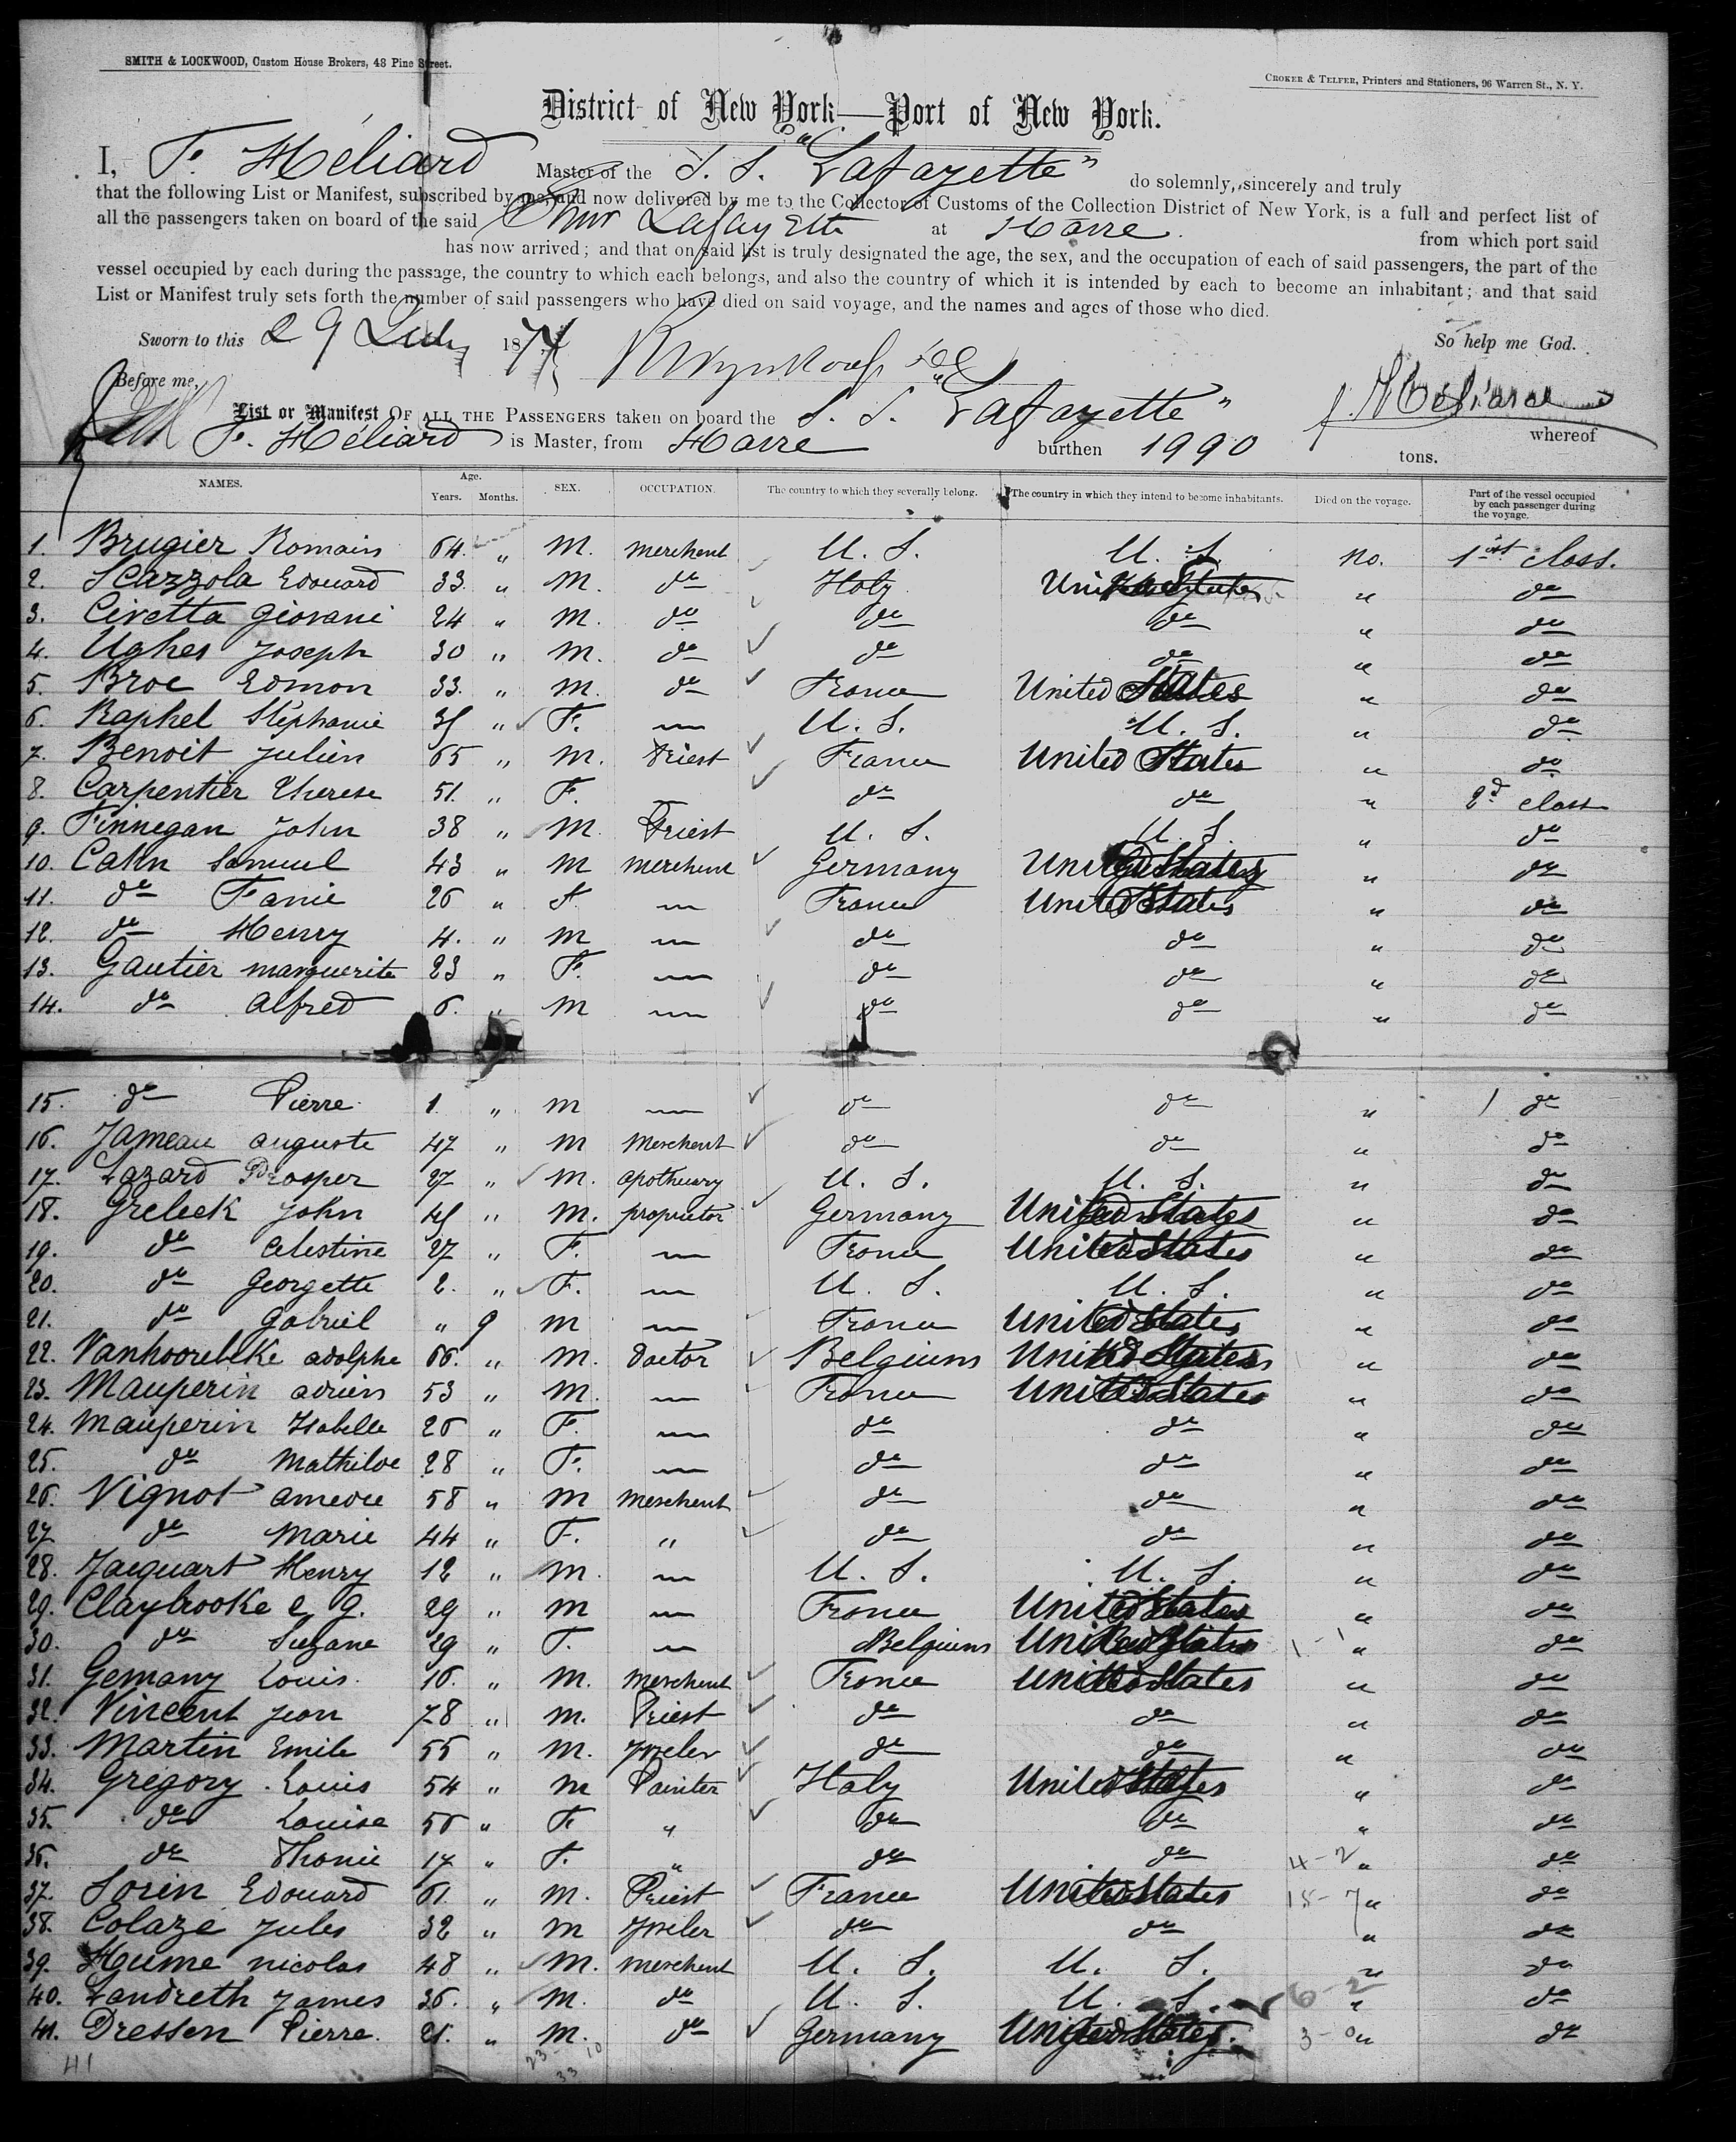 SMITH & LOCKWOOD, Custom House Brokers, 48 Pine Street.
CROKER & TELFER, Printers and Stationers, 96 Warren St., N. Y.
District of New York—Port of New York.
I, F. Héliard Master of the S. S. "Lafayette" do solemnly, sincerely and truly
that the following List or Manifest, subscribed by me, and now delivered by me to the Collector of Customs of the Collection District of New York, is a full and perfect list of
all the passengers taken on board of the said Lafayette at Havre from which port said
has now arrived; and that on said list is truly designated the age, the sex, and the occupation of each of said passengers, the part of the
vessel occupied by each during the passage, the country to which each belongs, and also the country of which it is intended by each to become an inhabitant; and that said
List or Manifest truly sets forth the number of said passengers who have died on said voyage, and the names and ages of those who died.
Sworn to this 29 July 1874 So help me God.
Before me, F. Héliard
List or Manifest OF ALL THE PASSENGERS taken on board the S. S. "Lafayette" whereof
F. Héliard is Master, from Havre burthen 1990 tons.
NAMES. Age. Years. Months. SEX. OCCUPATION. The country to which they severally belong. The country in which they intend to become inhabitants. Died on the voyage. Part of the vessel occupied by each passenger during the voyage.
1. Brugier Romain 64 " M. merchent U. S. U. S. no. 1st class.
2. Scazzola Edouard 33 " M. do Italy United States " do
3. Civetta Giovani 24 " M. do do do " do
4. Ughes Joseph 30 " M. do do do " do
5. Broc Edmon 33 " M. do France United States " do
6. Raphel Stéphanie " F. — U. S. U. S. " do
7. Benoit Julien 65 " M. Priest France United States " do
8. Carpentier Therese 51 " F. — do do " 2d class
9. Finnegan John 38 " M. Priest U. S. U. S. " do
10. Cahn Samuel 43 " M merchent Germany United States " do
11. do Fanie 26 " F. — France United States " do
12. do Henry 4. " M — do do " do
13. Gautier marguerite 23 " F. — do do " do
14. do Alfred 6. " M — do do " do
15. do Pierre 1 " M — do do " do
16. Jameau auguste 47 " M merchent do do " do
17. Lazard Prosper 27 " M. apothecary U. S. U. S. " do
18. Greleck John " M. proprietor Germany United States " do
19. do Celestine 27 " F. — France United States " do
20. do Georgette 2. " F. — U. S. U. S. " do
21. do Gabriel " 9 M — France United States " do
22. Vanhoorebeke adolphe 66. " M. Doctor Belgium United States " do
23. Mauperin adrien 53 " M. — France United States " do
24. Mauperin Isabelle 26 " F. — do do " do
25. do Mathilde 28 " F. — do do " do
26. Vignot amedee 58 " M merchent do do " do
27 do Marie 44 " F. " do do " do
28. Jacquart Henry 12 " M. — U. S. U. S. " do
29. Claybrooke e g. 29 " M — France United States " do
30. do Suzane 29 " F. — Belgium United States " do
31. Gemany Louis 16. " M. merchent France United States " do
32. Vincent Jean 78 " M. Priest do do " do
33. Martin Emile 55 " M. Jweler do do " do
34. Gregory Louis 54 " M Painter Italy United States " do
35. do Louise 56 " F. " do do " do
36. do 17 " F. " do do 4-2 " do
37. Sorin Edouard 61. " M. Priest France United States 15-7 " do
38. Colaze Jules 32 " M Jweler do do " do
39. Hume nicolas 48 " M. merchent U. S. U. S. " do
40. Landreth James 36. " M. do U. S. U. S. 6-2 " do
41. Dressen Pierre 21. " M. do Germany United States 3-0 " do
41 23 33 10